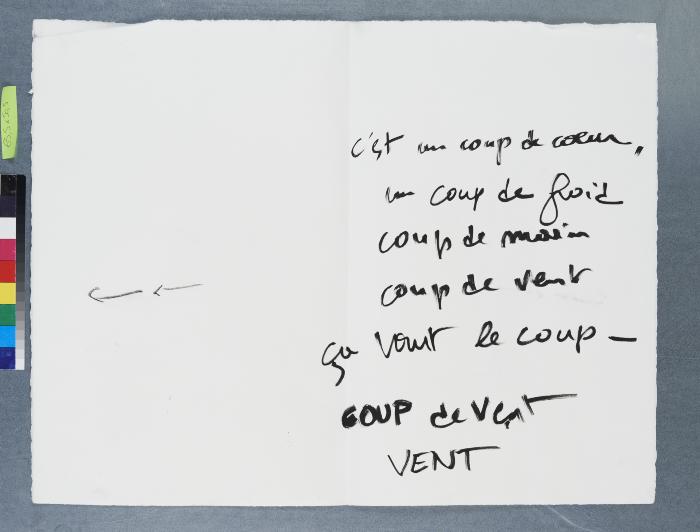 c'est un coup de coeur,
un coup de froid
coup de main
coup de vent
ça vaut le coup —
COUP de Vent
VENT